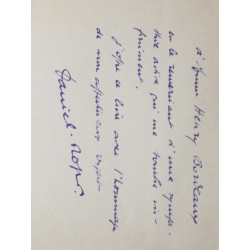 à Henry Bordeaux
en le remerciant d'une sympa-
thie active qui me touche in-
finiment.
J'offre ce livre avec l'hommage
de mon affectueux respect
Daniel-Rops.